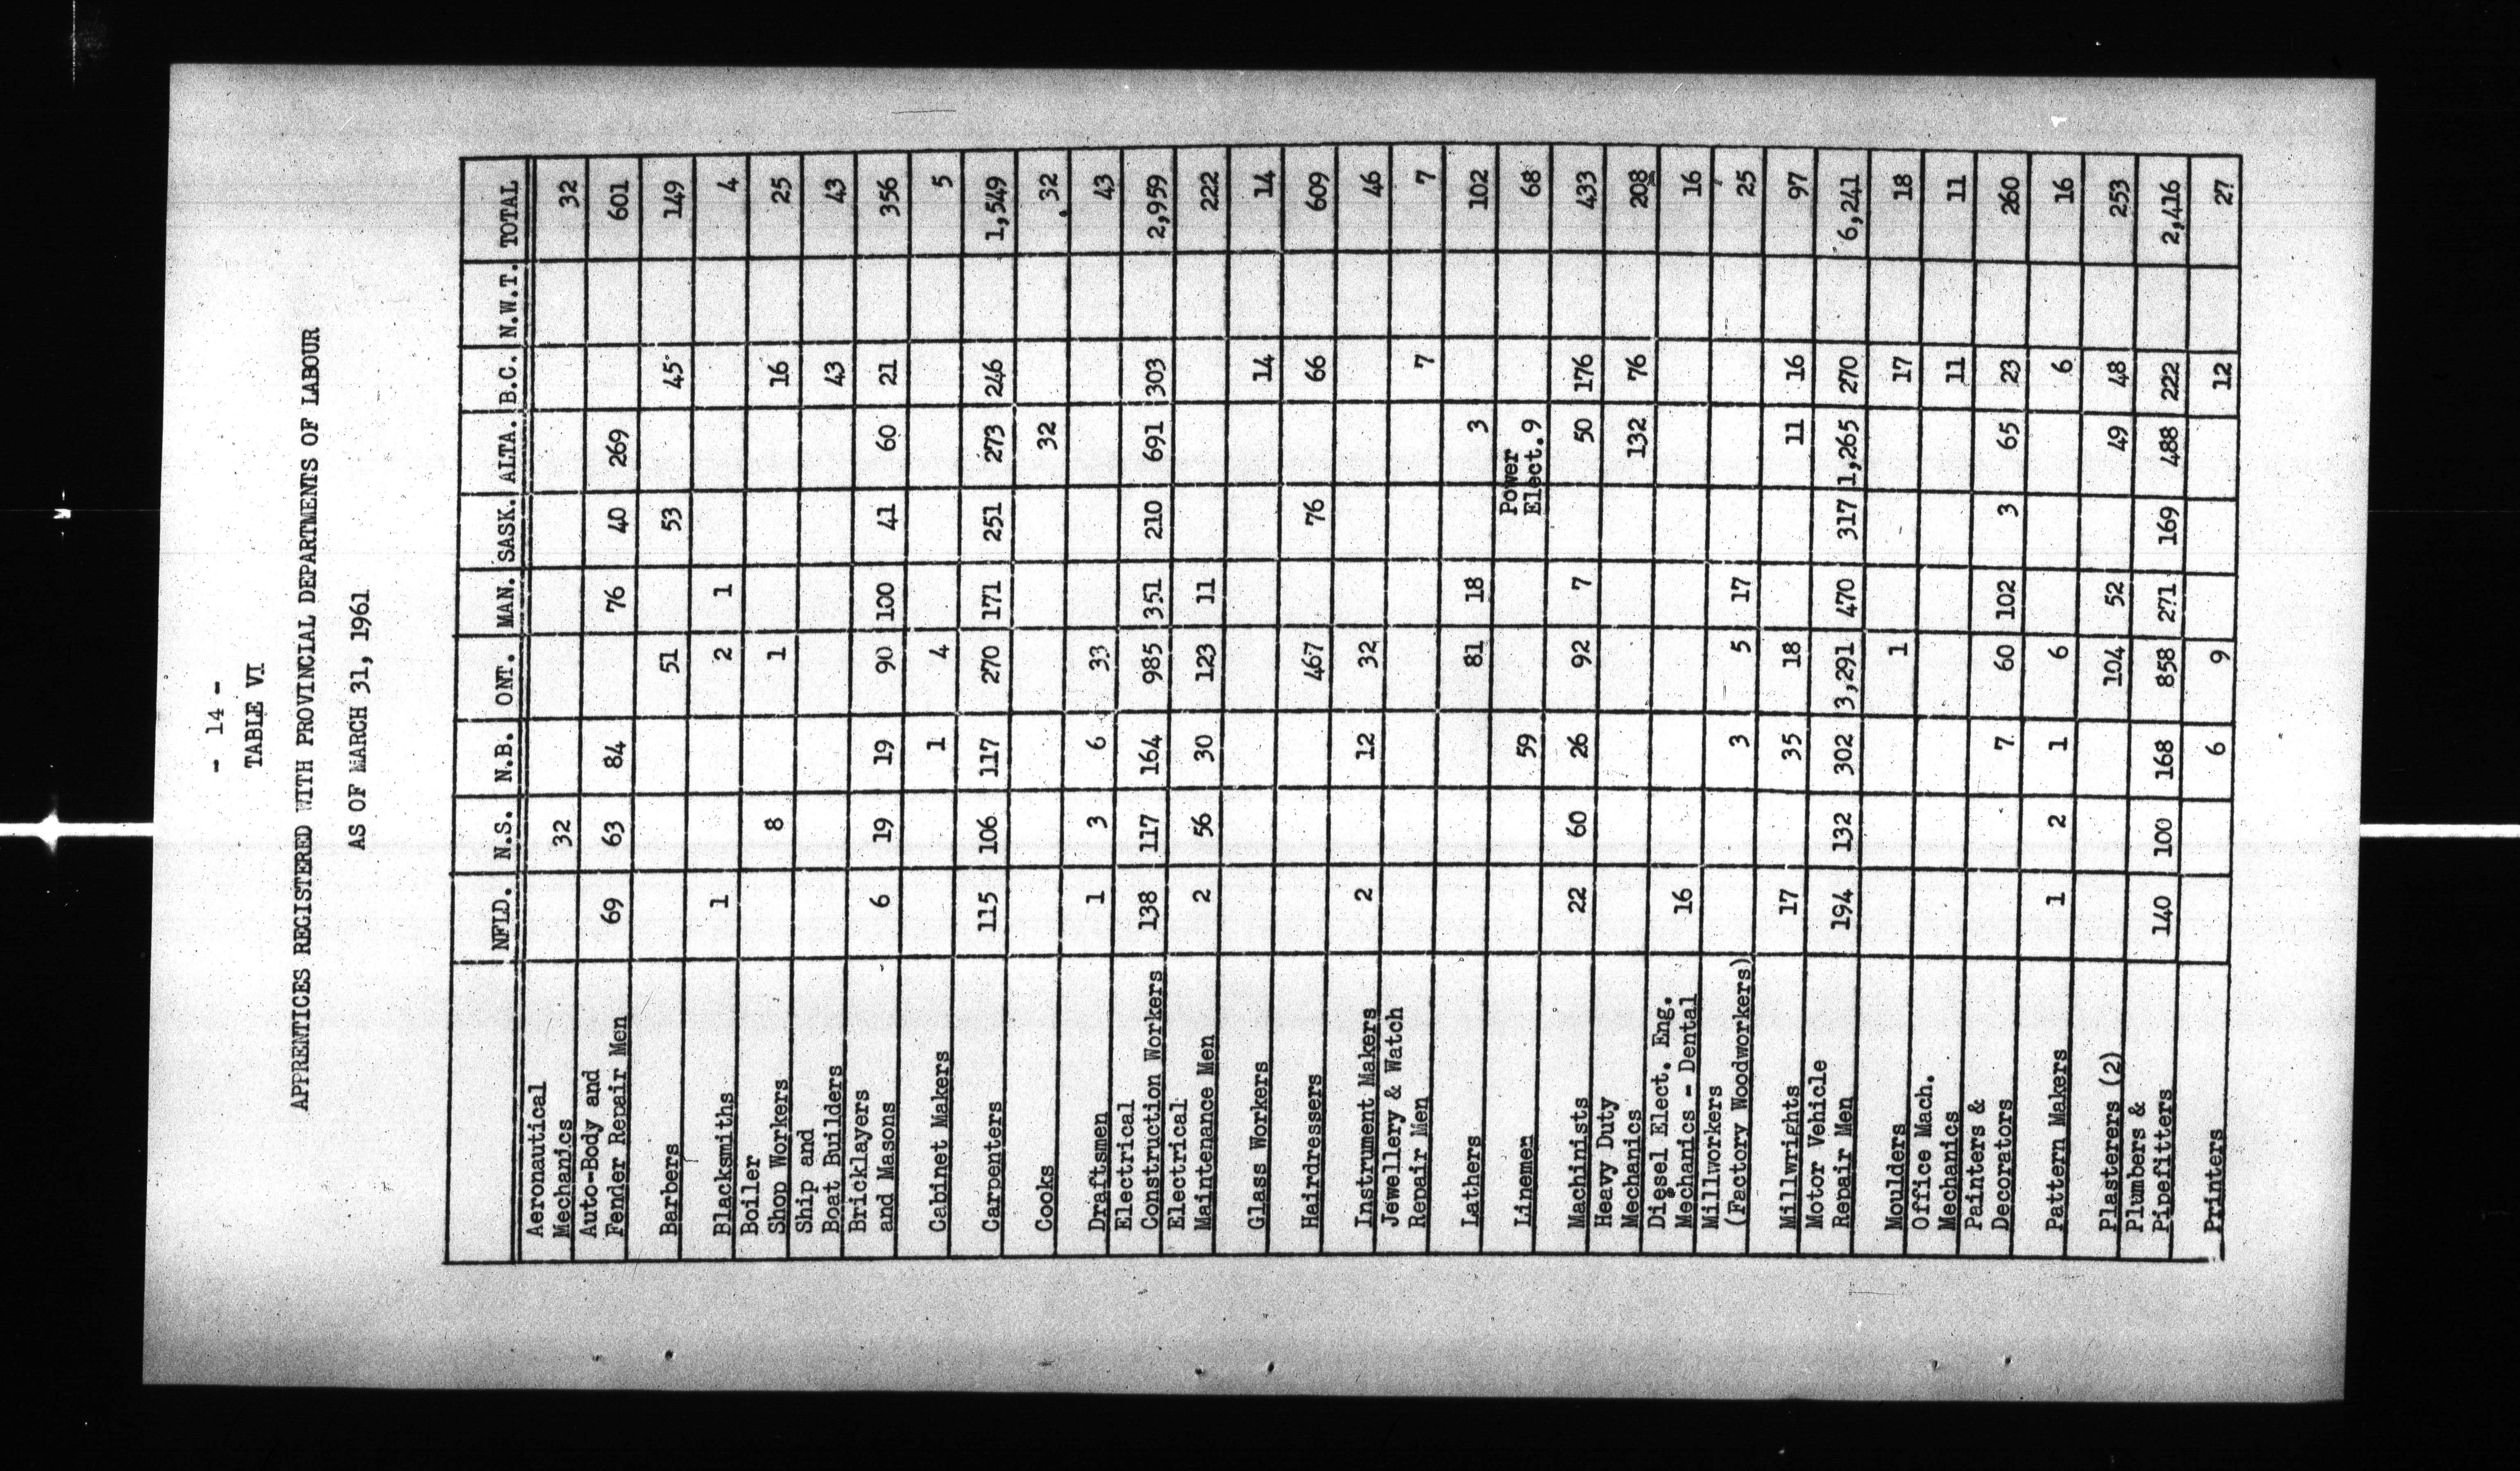 - 14 -
TABLE VI
APPRENTICES REGISTERED WITH PROVINCIAL DEPARTMENTS OF LABOUR
AS OF MARCH 31, 1961
NFLD. N.S. N.B. ONT. MAN. SASK. ALTA. B.C. N.W.T. TOTAL
Aeronautical
Mechanics 32 32
Auto-Body and
Fender Repair Men 69 63 84 76 40 269 601
Barbers 51 53 45 149
Blacksmiths 1 2 1 4
Boiler
Shop Workers 8 1 16 25
Ship and
Boat Builders 43 43
Bricklayers
and Masons 6 19 19 90 100 41 60 21 356
Cabinet Makers 1 4 5
Carpenters 115 106 117 270 171 251 273 246 1,549
Cooks 32 32
Draftsmen 1 3 6 33 43
Electrical
Construction Workers 138 117 164 985 351 210 691 303 2,959
Electrical
Maintenance Men 2 56 30 123 11 222
Glass Workers 14 14
Hairdressers 467 76 66 609
Instrument Makers 2 12 32 46
Jewellery & Watch
Repair Men 7 7
Lathers 81 18 3 102
Power
Linemen 59 Elect. 9 68
Machinists 22 60 26 92 7 50 176 433
Heavy Duty
Mechanics 132 76 208
Diesel Elect. Eng.
Mechanics - Dental 16 16
Millworkers
(Factory Woodworkers) 3 5 17 25
Millwrights 17 35 18 11 16 97
Motor Vehicle
Repair Men 194 132 302 3,291 470 317 1,265 270 6,241
Moulders 1 17 18
Office Mach.
Mechanics 11 11
Painters &
Decorators 7 60 102 3 65 23 260
Pattern Makers 1 2 1 6 6 16
Plasterers (2) 104 52 49 48 253
Plumbers &
Pipefitters 140 100 168 858 271 169 488 222 2,416
Printers 6 9 12 27